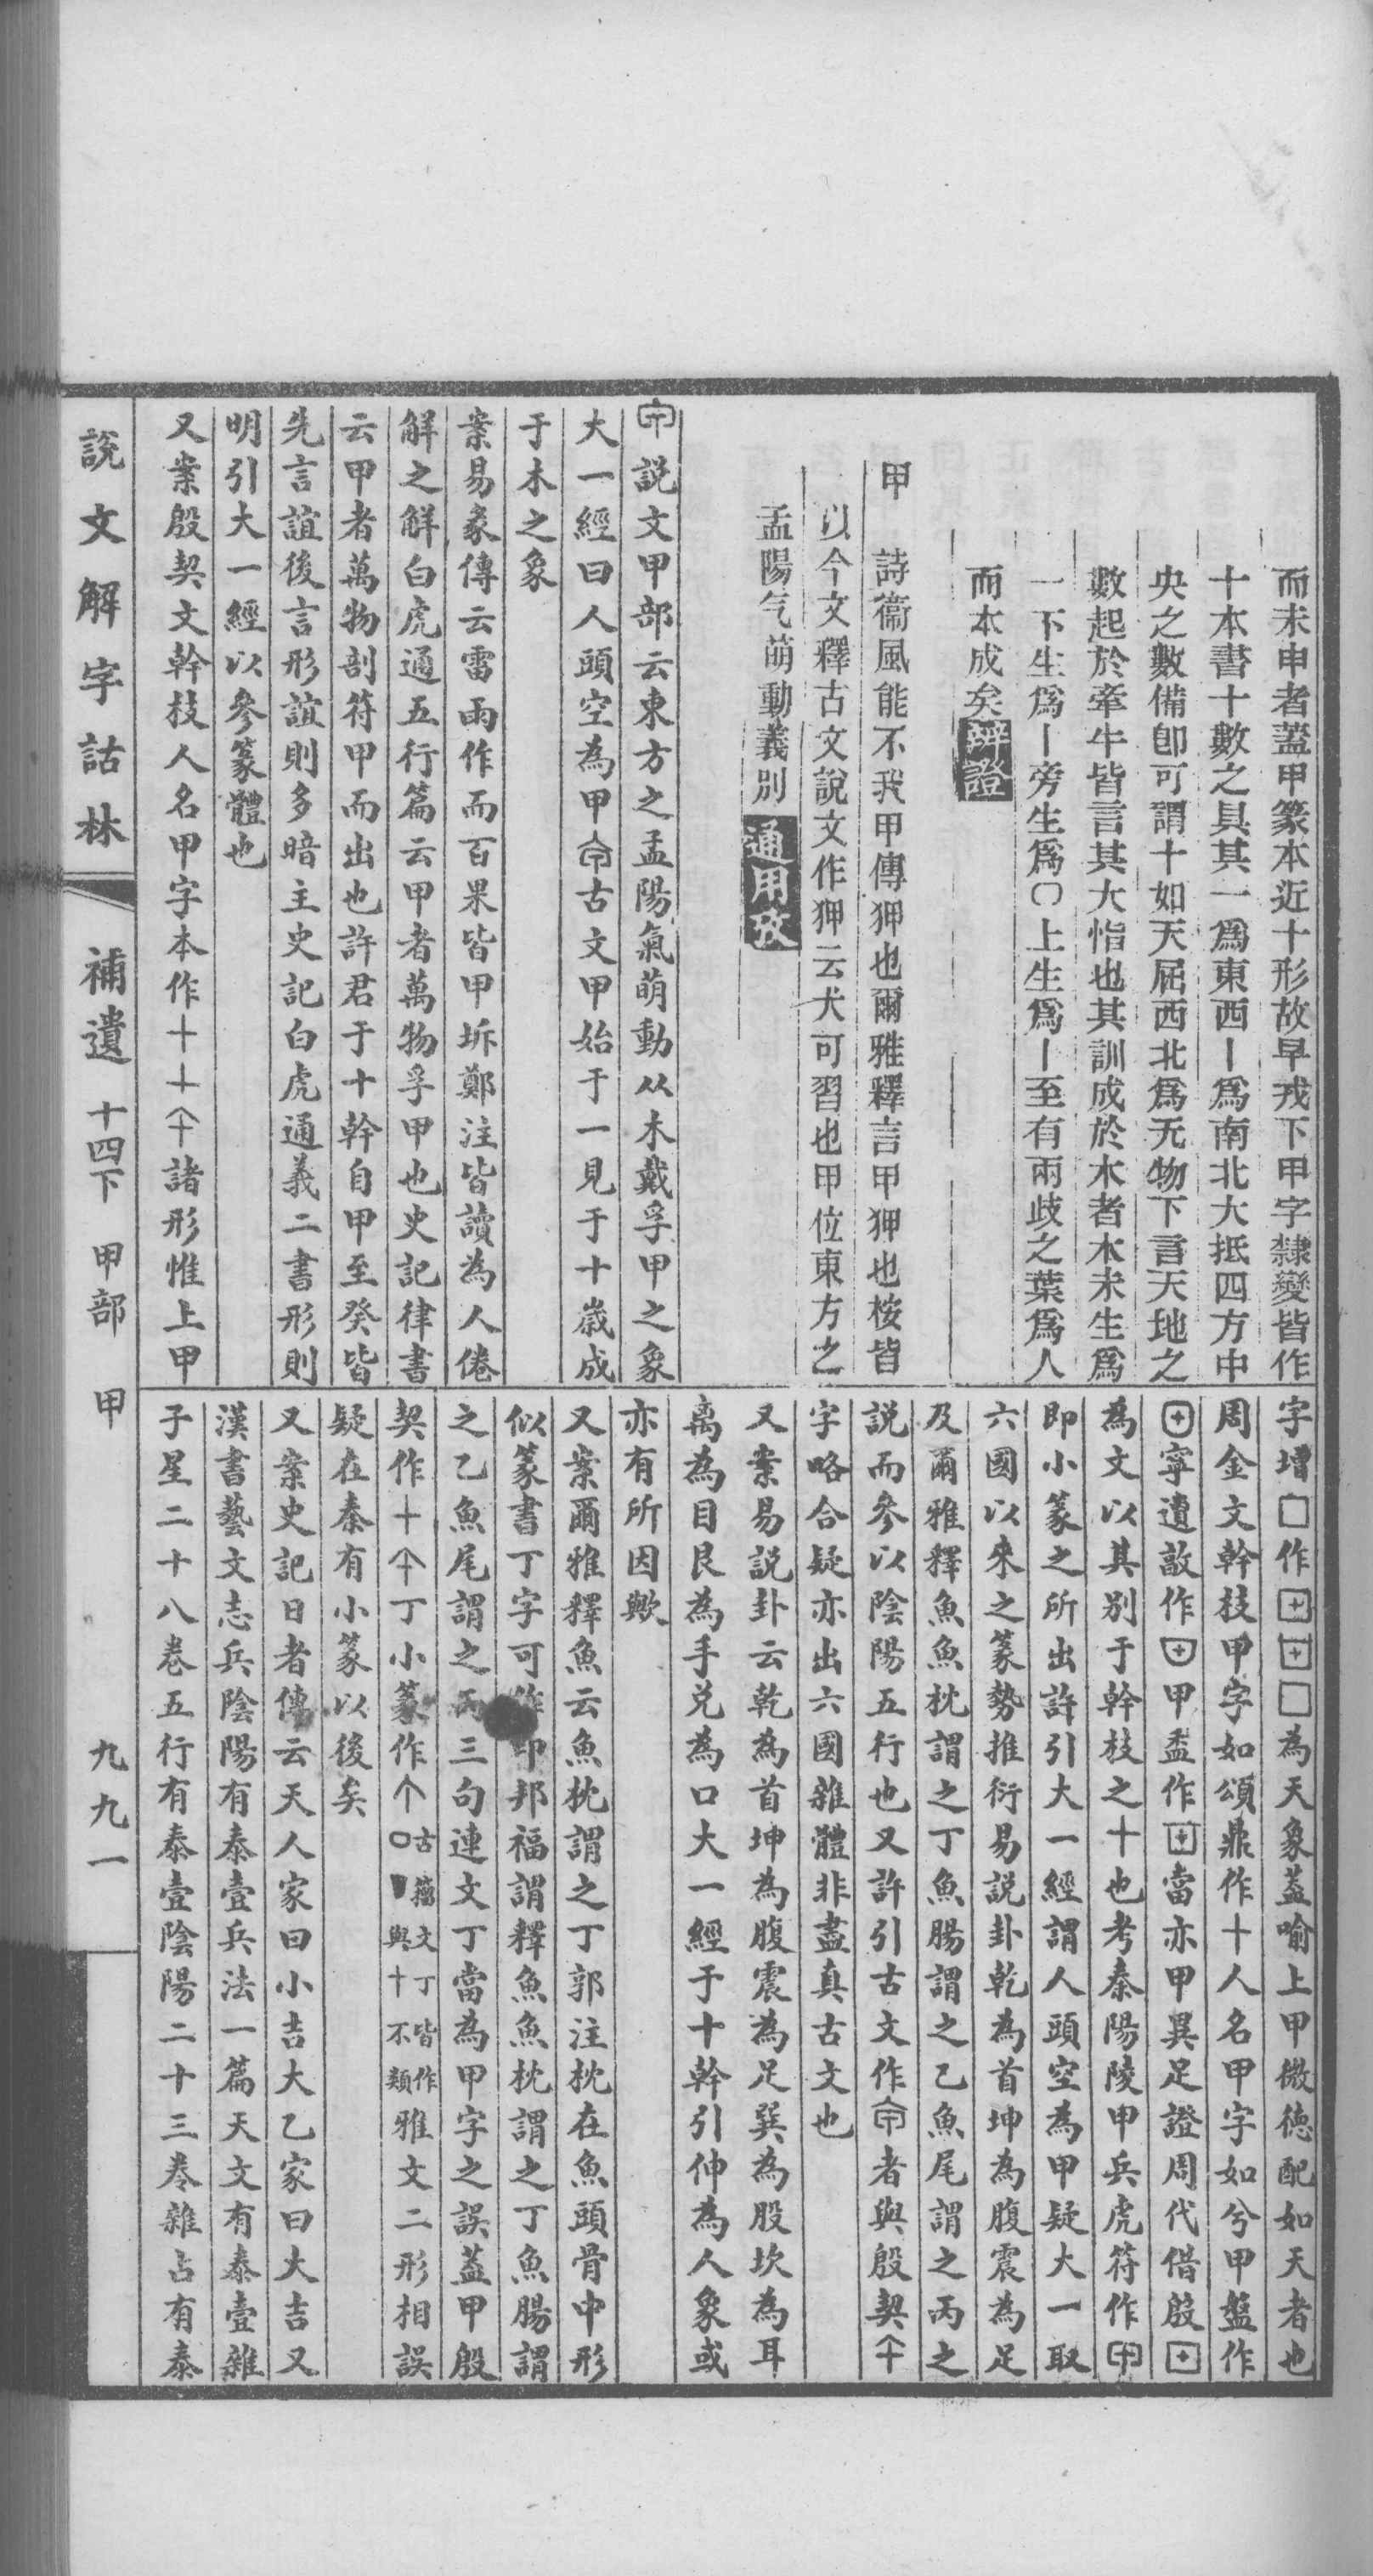 而未申者蓋甲篆本近十形故早戎下甲字隸變皆作
十本書十數之具其一爲東西丨爲南北大抵四方中
央之數備卽可謂十如天屈西北爲无物下言天地之
數起於牽牛皆言其大恉也其訓成於木者木未生爲
一下生爲丨旁生爲〇上生爲丨至有兩歧之葉爲人
而本成矣辨證
甲　詩衞風能不我甲傳狎也爾雅釋言甲狎也桉皆
以今文釋古文說文作狎云犬可習也甲位東方之
孟陽气萌動義別通用攷
説文甲部云東方之孟陽氣萌動从木戴孚甲之象
大一經曰人頭空為甲古文甲始于一見于十歲成
于木之象
案易彖傳云雷雨作而百果皆甲坼鄭注皆讀為人倦
解之解白虎通五行篇云甲者萬物孚甲也史記律書
云甲者萬物剖符甲而出也許君于十幹自甲至癸皆
先言誼後言形誼則多暗主史記白虎通義二書形則
明引大一經以參篆體也
又案殷契文幹枝人名甲字本作十十諸形惟上甲
字増囗作為天象蓋喻上甲微德配如天者也
周金文幹枝甲字如頌鼎作十人名甲字如兮甲盤作
寧遺敦作甲盉作當亦甲異足證周代借殷
為文以其別于幹枝之十也考秦陽陵甲兵虎符作
即小篆之所出許引大一經謂人頭空為甲疑大一取
六國以來之篆勢推衍易説卦乾為首坤為腹震為足
及爾雅釋魚魚枕謂之丁魚腸謂之乙魚尾謂之丙之
説而參以陰陽五行也又許引古文作者與殷契
字略合疑亦出六國雜體非盡真古文也
又案易説卦云乾為首坤為腹震為足巽為股坎為耳
離為目艮為手兌為口大一經于十幹引伸為人象或
亦有所因歟
又案爾雅釋魚云魚枕謂之丁郭注枕在魚頭骨中形
似篆書丁字可作印邦福謂釋魚魚枕謂之丁魚腸謂
之乙魚尾謂之丙三句連文丁當為甲字之誤蓋甲殷
契作十丁小篆作古籀文丁皆作與十不類雅文二形相誤
疑在秦有小篆以後矣
又案史記日者傳云天人家曰小吉大乙家曰大吉又
漢書藝文志兵陰陽有泰壹兵法一篇天文有泰壹雜
子星二十八卷五行有泰壹陰陽二十三卷雜占有泰
說文解字詁林　補遺　十四下　甲部　甲　九九一